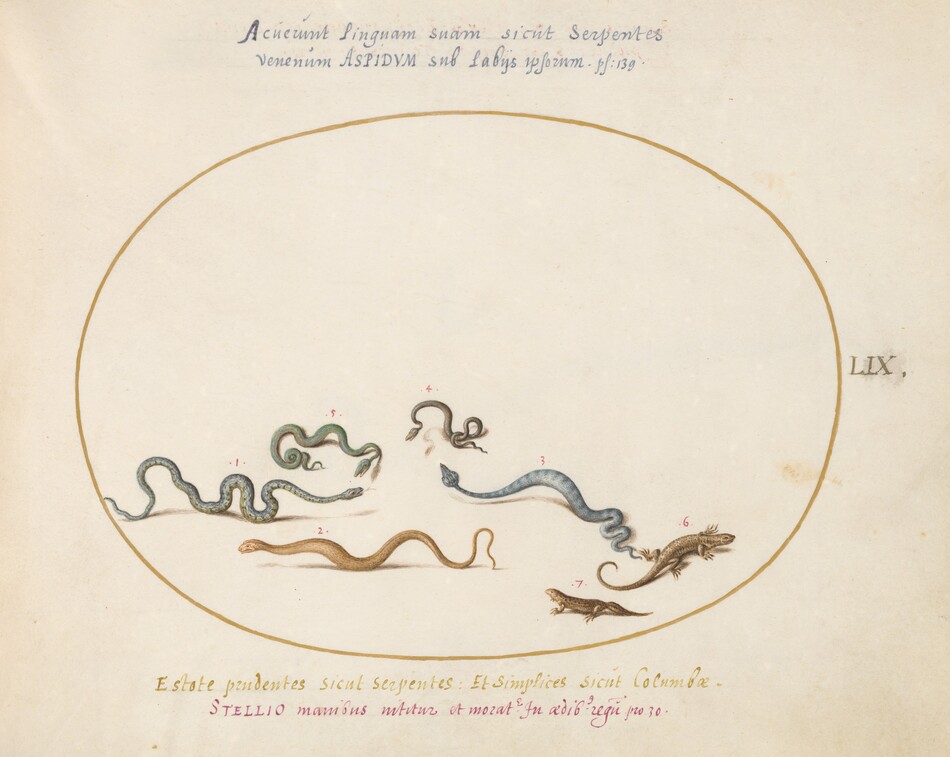 Acuerunt linguam suam sicut Serpentes
venenum ASPIDVM sub labijs ipsorum. ps: 139.
LIX.
.4.
.5.
.1.
.3.
.2.
.6.
.7.
Estote prudentes sicut serpentes: Et Simplices sicut Columbæ.
STELLIO manibus nititur et morat^r In ædib^9 regũ pro 30.